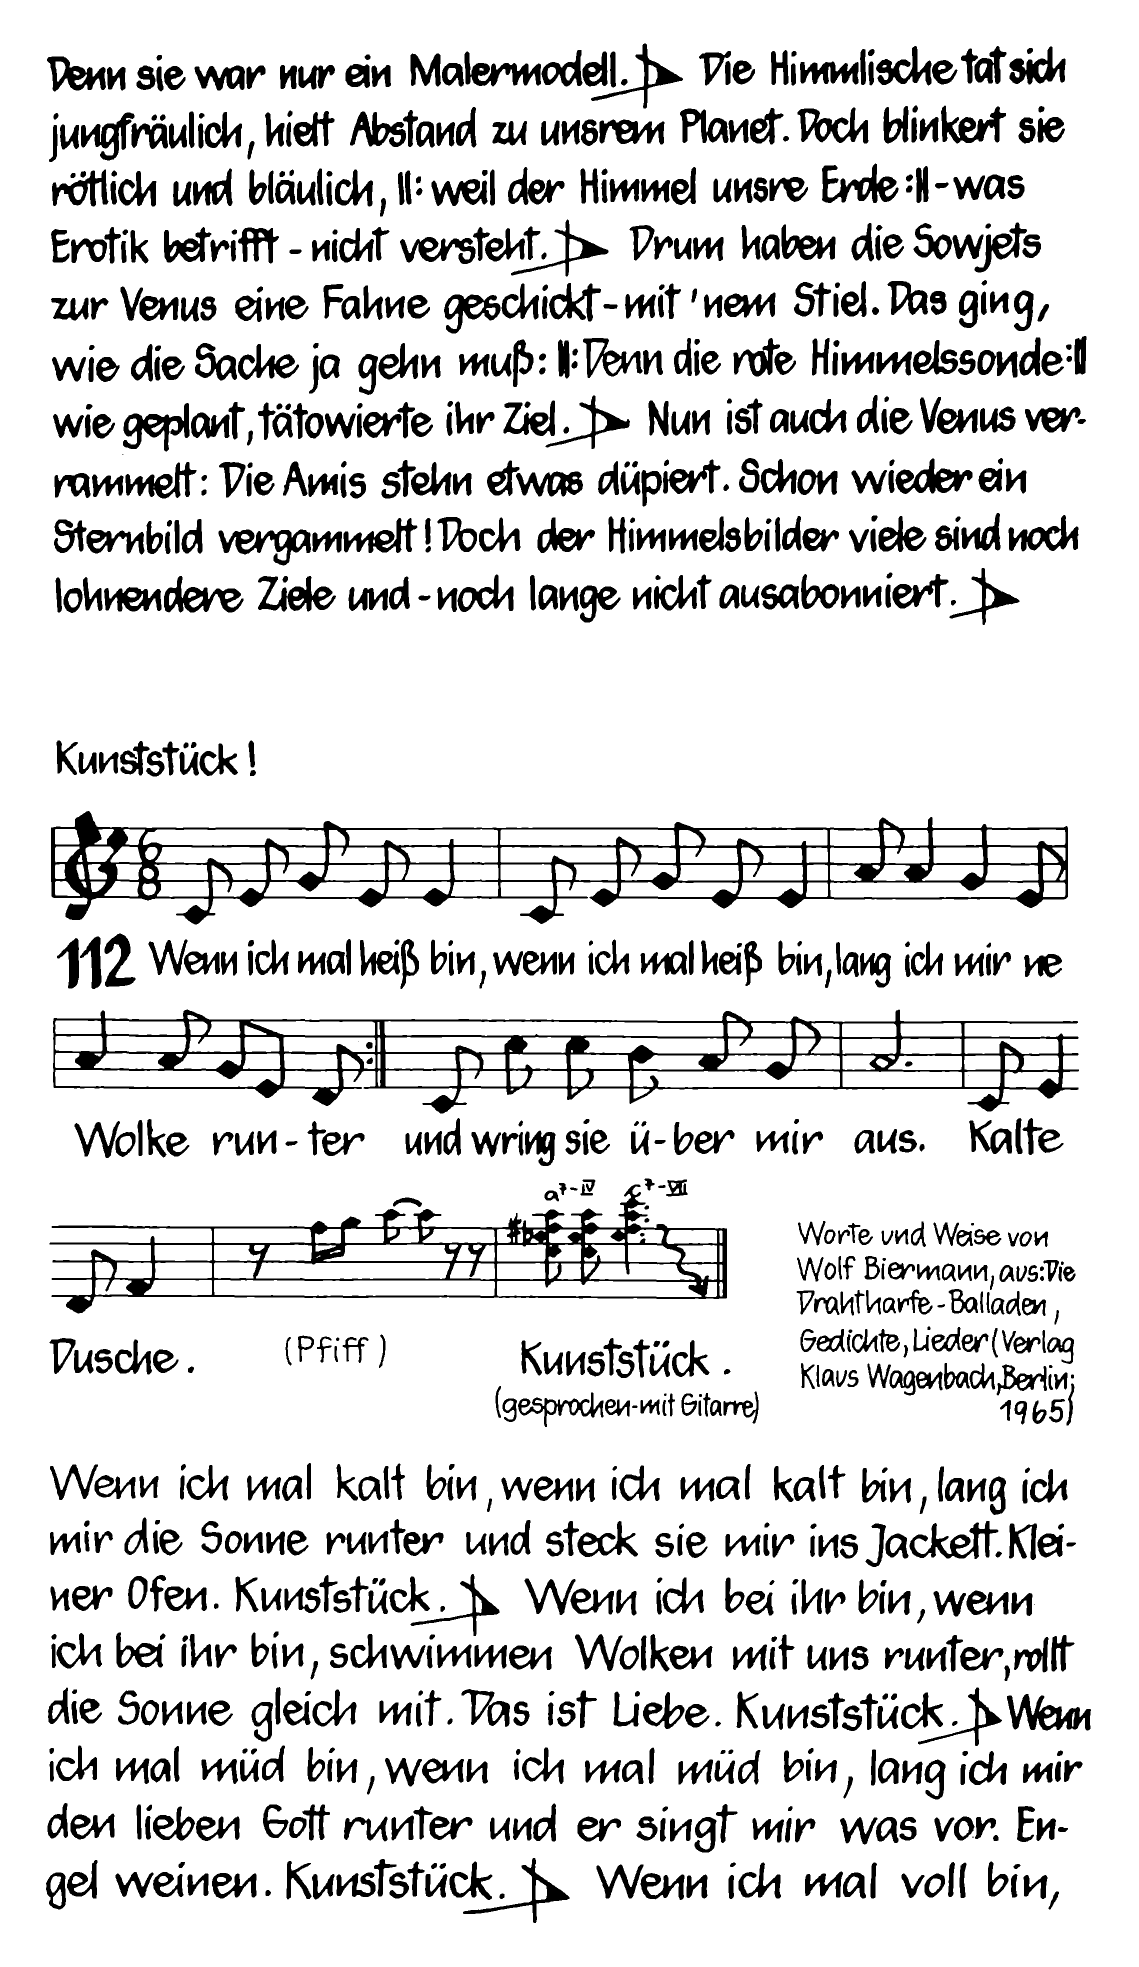 Denn sie war nur ein Malermodell. Die Himmlische tat sich
jungfräulich, hielt Abstand zu unsrem Planet. Doch blinkert sie
rötlich und bläulich, ||: weil der Himmel unsre Erde :|| - was
Erotik betrifft - nicht versteht. Drum haben die Sowjets
zur Venus eine Fahne geschickt - mit 'nem Stiel. Das ging,
wie die Sache ja gehn muß: ||: Denn die rote Himmelssonde :||
wie geplant, tätowierte ihr Ziel. Nun ist auch die Venus ver-
rammelt: Die Amis stehn etwas düpiert. Schon wieder ein
Sternbild vergammelt! Doch der Himmelsbilder viele sind noch
lohnendere Ziele und - noch lange nicht ausabonniert.
Kunststück!
6
8
112 Wenn ich mal heiß bin, wenn ich mal heiß bin, lang ich mir ne
Wolke run - ter und wring sie ü - ber mir aus. Kalte
a7-IV c7-VII
Dusche. (Pfiff) Kunststück.
(gesprochen - mit Gitarre)
Worte und Weise von
Wolf Biermann, aus: Die
Drahtharfe - Balladen,
Gedichte, Lieder (Verlag
Klaus Wagenbach, Berlin;
1965)
Wenn ich mal kalt bin, wenn ich mal kalt bin, lang ich
mir die Sonne runter und steck sie mir ins Jackett. Klei-
ner Ofen. Kunststück. Wenn ich bei ihr bin, wenn
ich bei ihr bin, schwimmen Wolken mit uns runter, rollt
die Sonne gleich mit. Das ist Liebe. Kunststück. Wenn
ich mal müd bin, wenn ich mal müd bin, lang ich mir
den lieben Gott runter und er singt mir was vor. En-
gel weinen. Kunststück. Wenn ich mal voll bin,